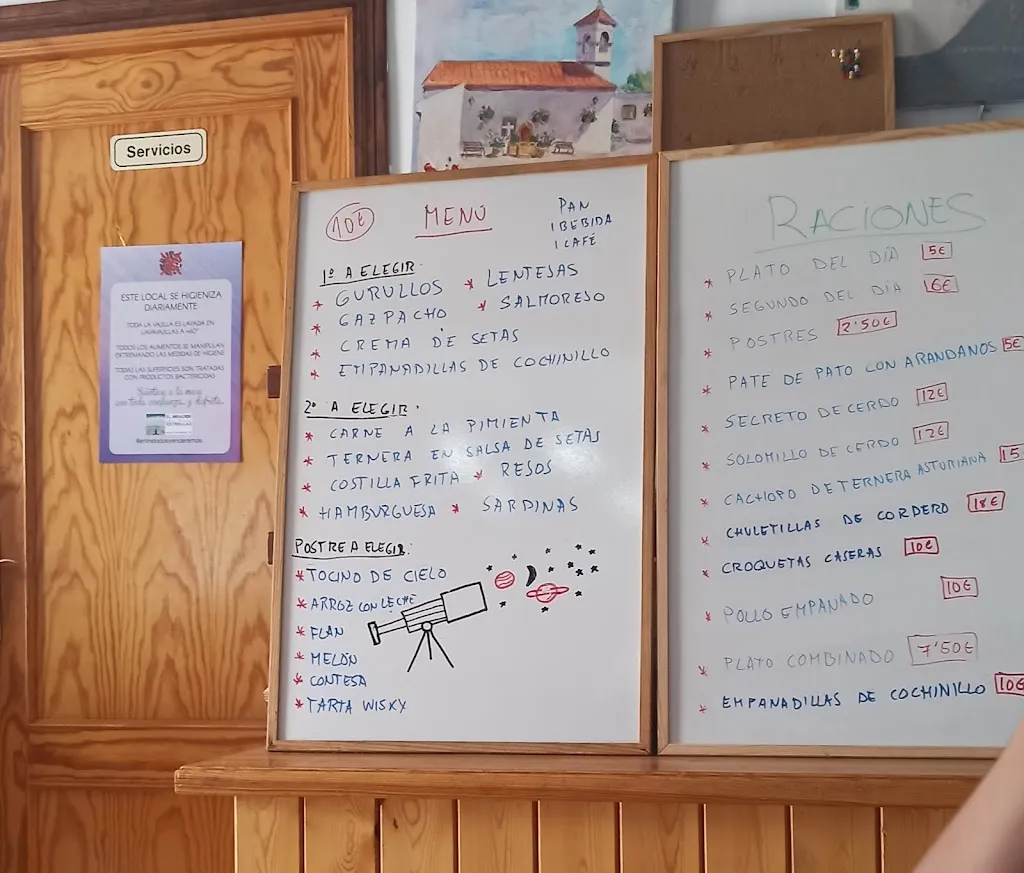 Servicios
ESTE LOCAL SE HIGIENIZA
DIARIAMENTE
TODA LA VAJILLA ES LAVADA EN
LAVAVAJILLAS A +60º
TODOS LOS ALIMENTOS SE MANIPULAN
EXTREMANDO LAS MEDIDAS DE HIGIENE
TODAS LAS SUPERFICIES SON TRATADAS
CON PRODUCTOS BACTERICIDAS
10€ MENÚ
PAN
1 BEBIDA
1 CAFÉ
1º A ELEGIR:
* GURULLOS * LENTEJAS
* GAZPACHO * SALMOREJO
* CREMA DE SETAS
* EMPANADILLAS DE COCHINILLO
2º A ELEGIR:
* CARNE A LA PIMIENTA
* TERNERA EN SALSA DE SETAS
* COSTILLA FRITA * RESOS
* HAMBURGUESA * SARDINAS
POSTRE A ELEGIR:
* TOCINO DE CIELO
* ARROZ CON LECHE
* FLAN
* MELÓN
* CONTESA
* TARTA WISKY
RACIONES
* PLATO DEL DÍA 5€
* SEGUNDO DEL DÍA 6€
* POSTRES 2'50€
* PATE DE PATO CON ARANDANOS 5€
* SECRETO DE CERDO 12€
* SOLOMILLO DE CERDO 12€
* CACHOPO DE TERNERA ASTURIANA 15
* CHULETILLAS DE CORDERO 18€
* CROQUETAS CASERAS 10€
* POLLO EMPANADO 10€
* PLATO COMBINADO 7'50€
* EMPANADILLAS DE COCHINILLO 10€